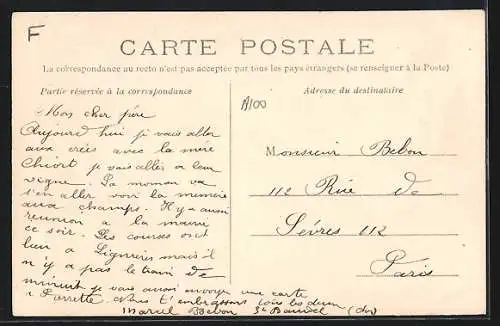 F
CARTE POSTALE
La correspondance au recto n'est pas acceptée par tous les pays étrangers (se renseigner à la Poste)
Partie réservée à la correspondance
Adresse du destinataire
A100
Mon cher père
Aujourd'hui je vais aller
aux avec la mère
je vais aller a leur
vigne. Sa moman va
s'en aller voir la mémére
aux champs. Il y a aussi
reunion a la mairie
ce soir. Les courses ont
lieu a Lignieres mais il
n'y a pas le train de
minuit je vais aussi envoyer une carte
a Parrette. Nous t'embrassons tous les deux
Marcel Bebon St Baudel (cher)
Monsieur Bebon
112 Rue de
Sévres 112
Paris